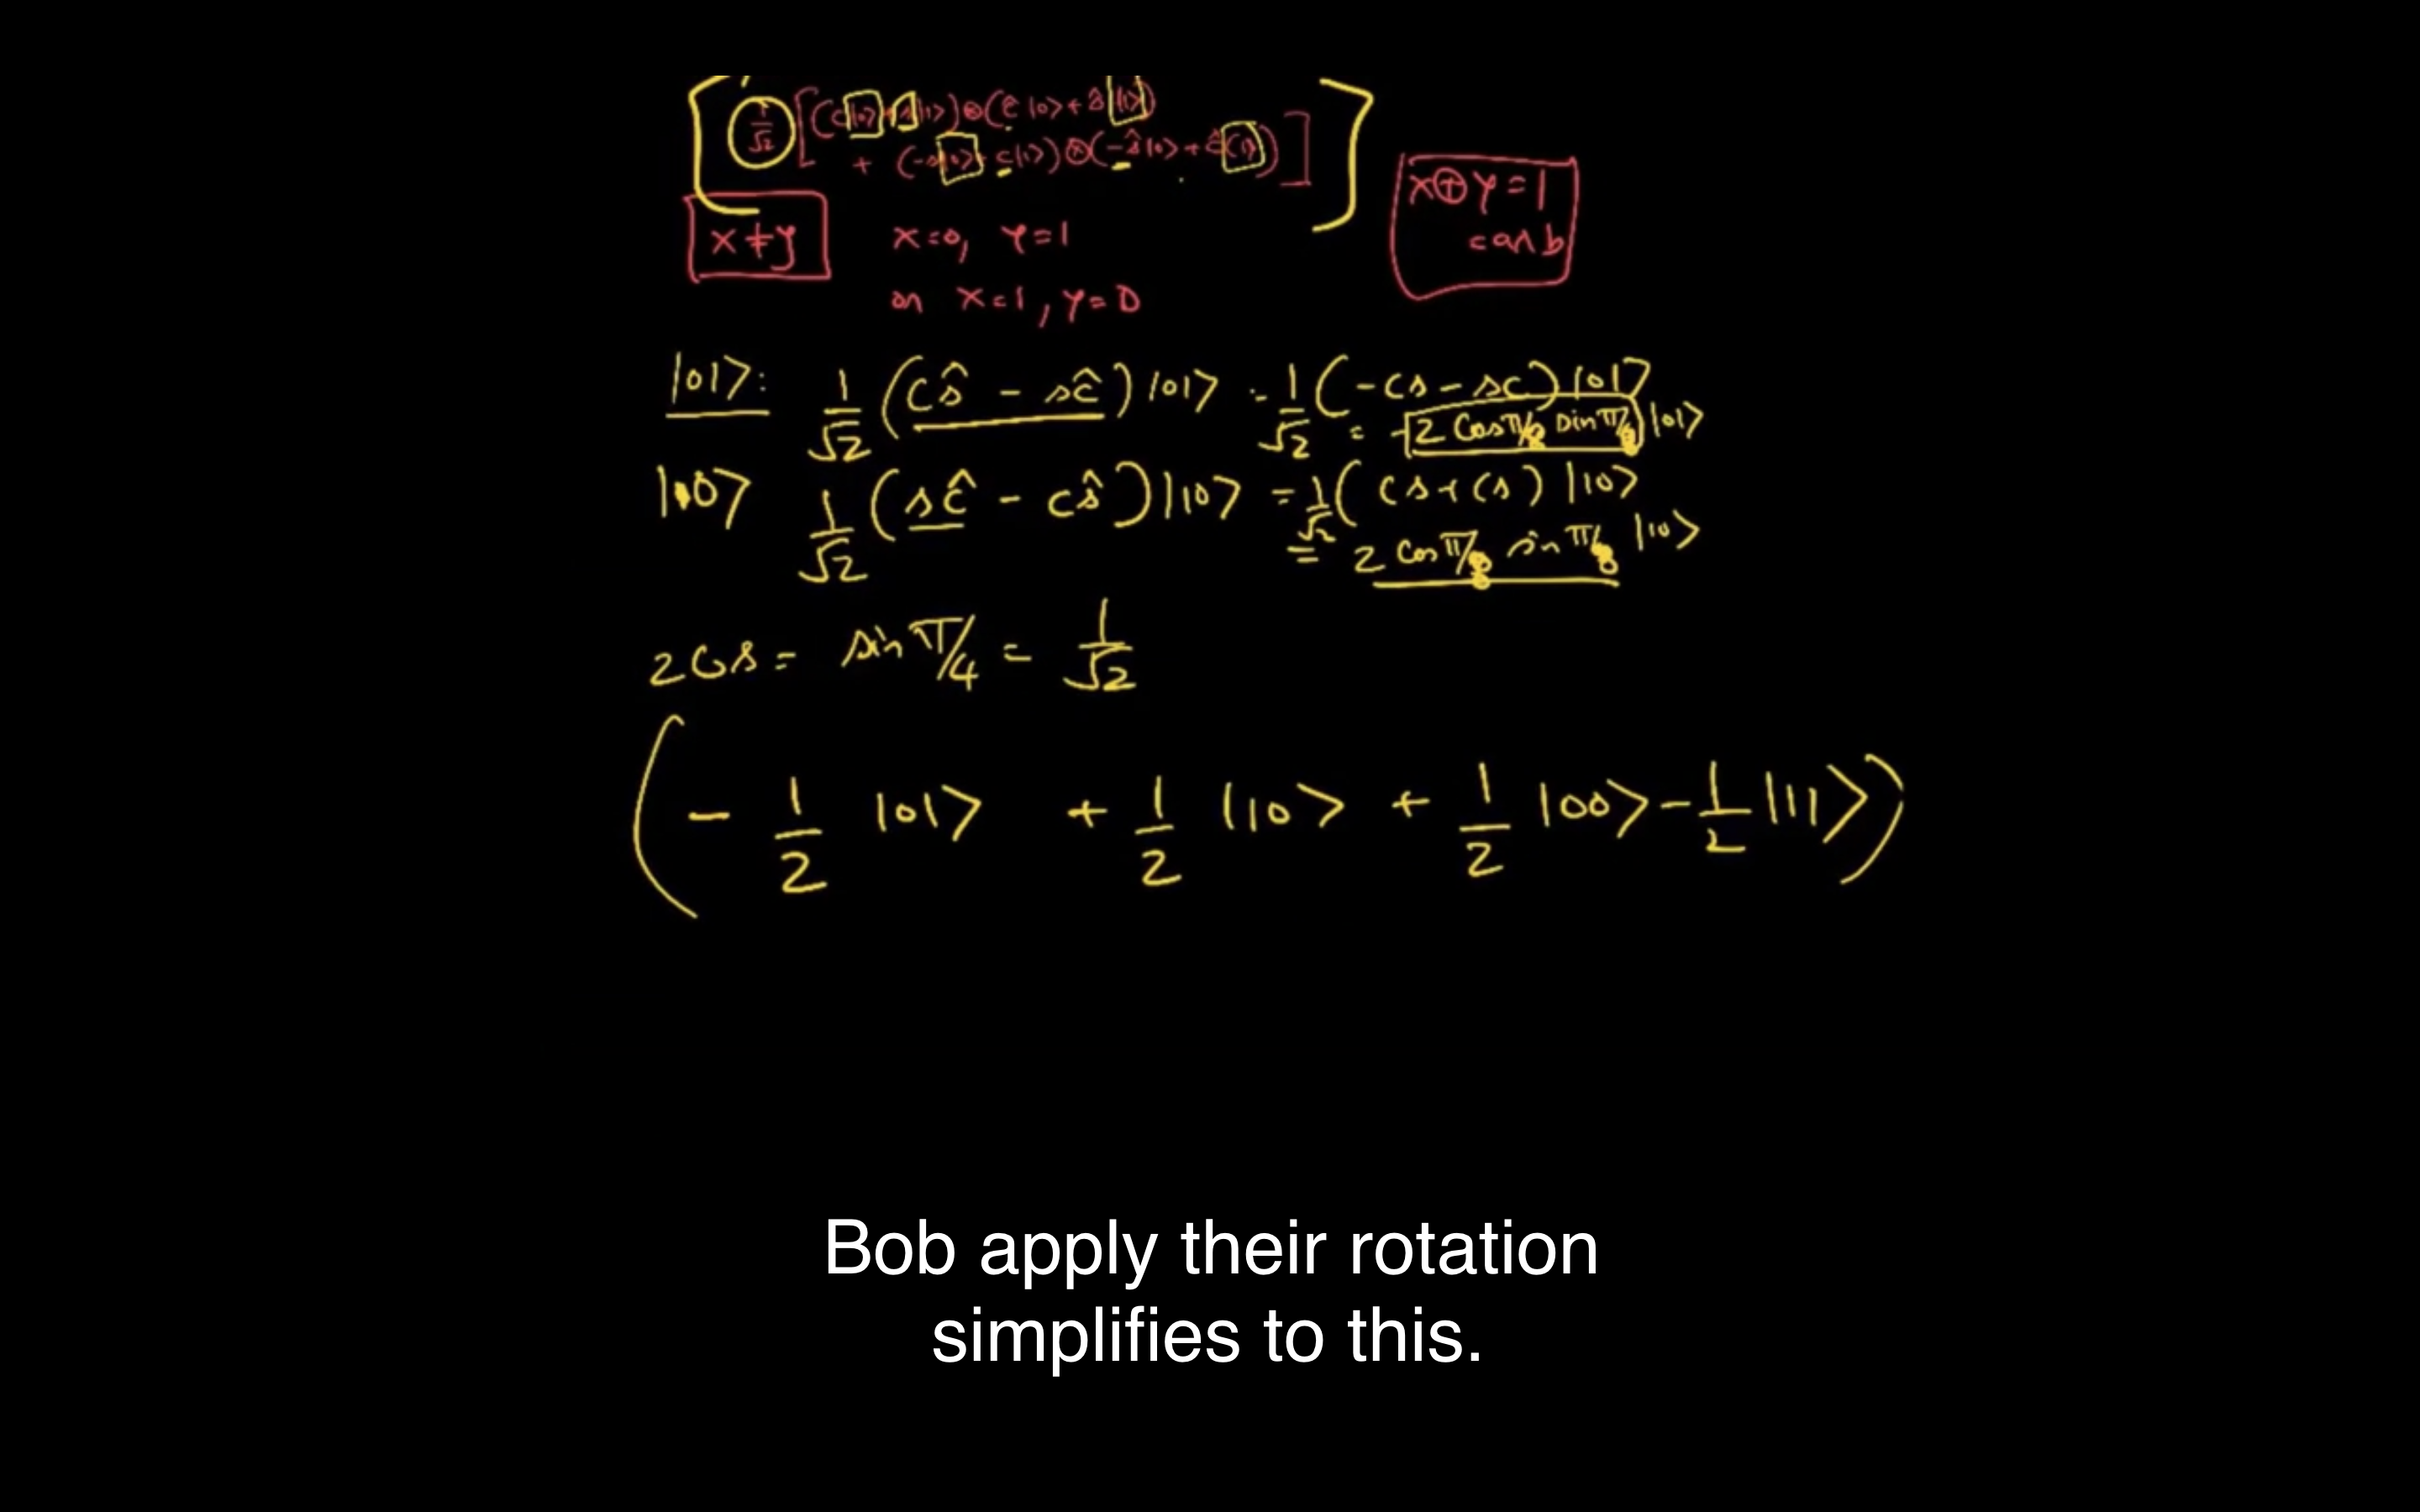 1/√2 [(c|0> + s|1>) ⊗ (ĉ|0> + ŝ|1>)
+ (-s|0> + c|1>) ⊗ (-ŝ|0> + ĉ|1>)]
x ≠ y x=0, y=1
or x=1, y=0
x⊕y=1
= a∧b
|01>: 1/√2 (cŝ - sĉ)|01> = 1/√2 (-cs - sc)|01>
= -2 cos π/8 sin π/8 |01>
|10> 1/√2 (sĉ - cŝ)|10> = 1/√2 (cs + cs)|10>
= 2 cos π/8 sin π/8 |10>
2cs = sin π/4 = 1/√2
(- 1/2 |01> + 1/2 |10> + 1/2 |00> - 1/2 |11>)
Bob apply their rotation
simplifies to this.